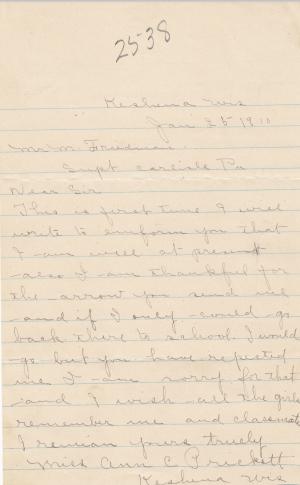 2538
Keshena Wis
Jan 25 1910
Mr. M. Friedman.
Supt Carlisle Pa
Dear Sir
This is first time I will
write to enform you that
I am well at present
also I am thankful for
the arrow you send me
and if I only could go
back there to school. I would
go but you have rejected
me I am sorry for that
and I wish all the girls
remember me and classmate
I remian yours truely
Miss Ann C Prickett
Keshena Wis